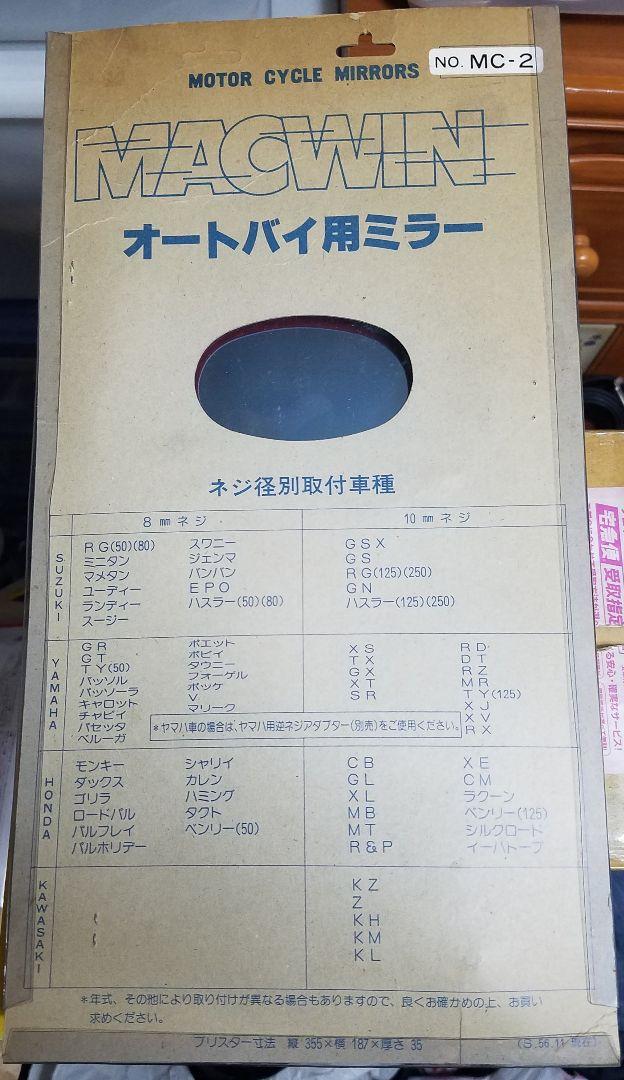 MOTOR CYCLE MIRRORS
NO. MC-2
MACWIN
オートバイ用ミラー
ネジ径別取付車種
8 mm ネジ
10 mm ネジ
SUZUKI
RG(50)(80)
ミニタン
マメタン
ユーディー
ランディー
スージー
スワニー
ジェンマ
バンバン
EPO
ハスラー(50)(80)
GSX
GS
RG(125)(250)
GN
ハスラー(125)(250)
YAMAHA
GR
GT
TY(50)
パッソル
パッソーラ
キャロット
チャピイ
パセッタ
ベルーガ
ポエット
ボビイ
タウニー
フォーゲル
ポッケ
V
マリーク
XS
TX
GX
XT
SR
RD
DT
RZ
MR
TY(125)
XJ
XV
RX
*ヤマハ車の場合は、ヤマハ用逆ネジアダプター(別売)をご使用ください。
HONDA
モンキー
ダックス
ゴリラ
ロードパル
パルフレイ
パルホリデー
シャリイ
カレン
ハミング
タクト
ベンリー(50)
CB
GL
XL
MB
MT
R&P
XE
CM
ラクーン
ベンリー(125)
シルクロード
イーハトーブ
KAWASAKI
KZ
Z
KH
KM
KL
*年式、その他により取り付けが異なる場合もありますので、良くお確かめの上、お買い
求めください。
ブリスター寸法 縦 355×横 187×厚さ 35
(S.56.11現在)
宅急便 受取指定